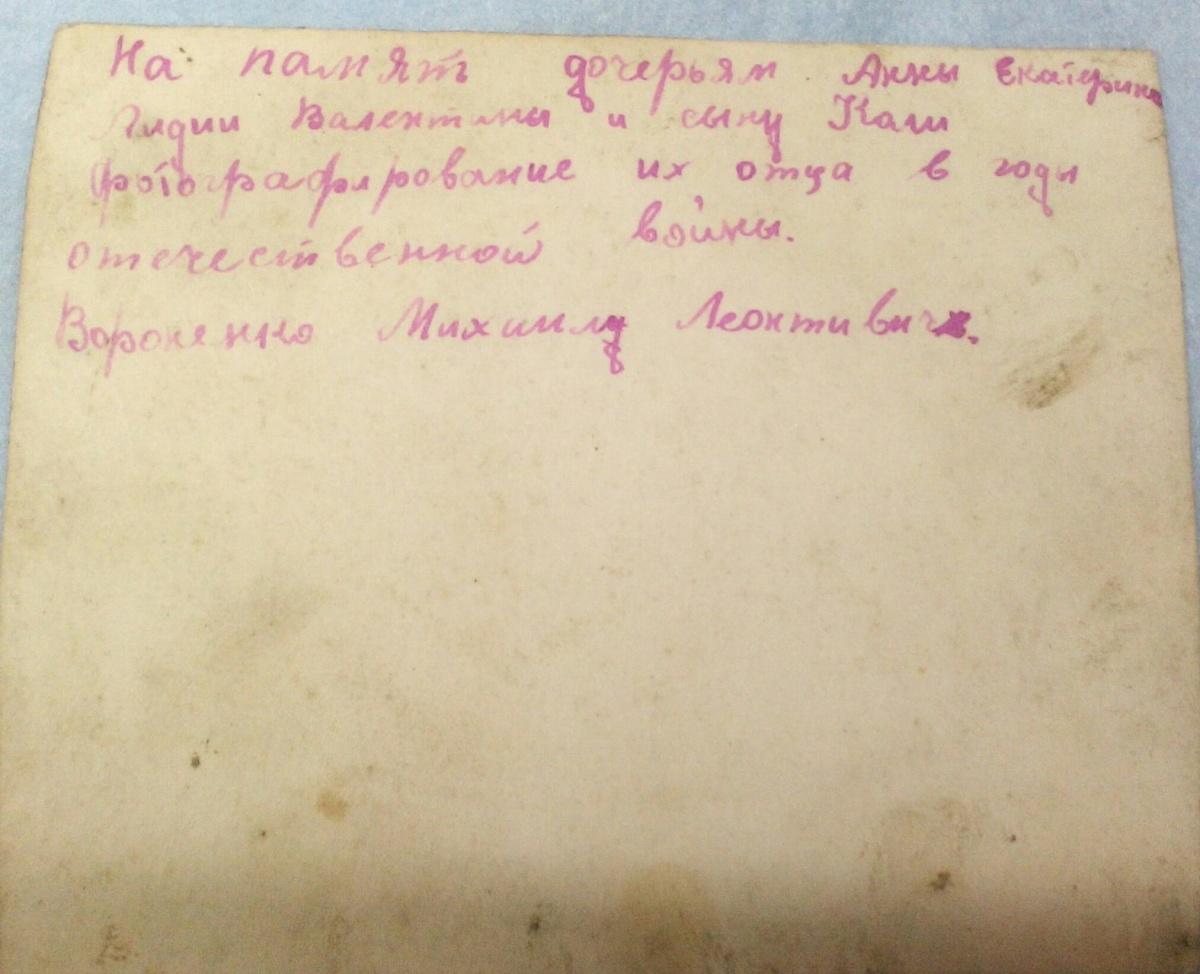 На памят дочерьям Анны Екатерины
Лидии Валентины и сыну Коли
фотографирование их отца в годы
отечественной войны.
Вороненко Михаилу Леонтивич.